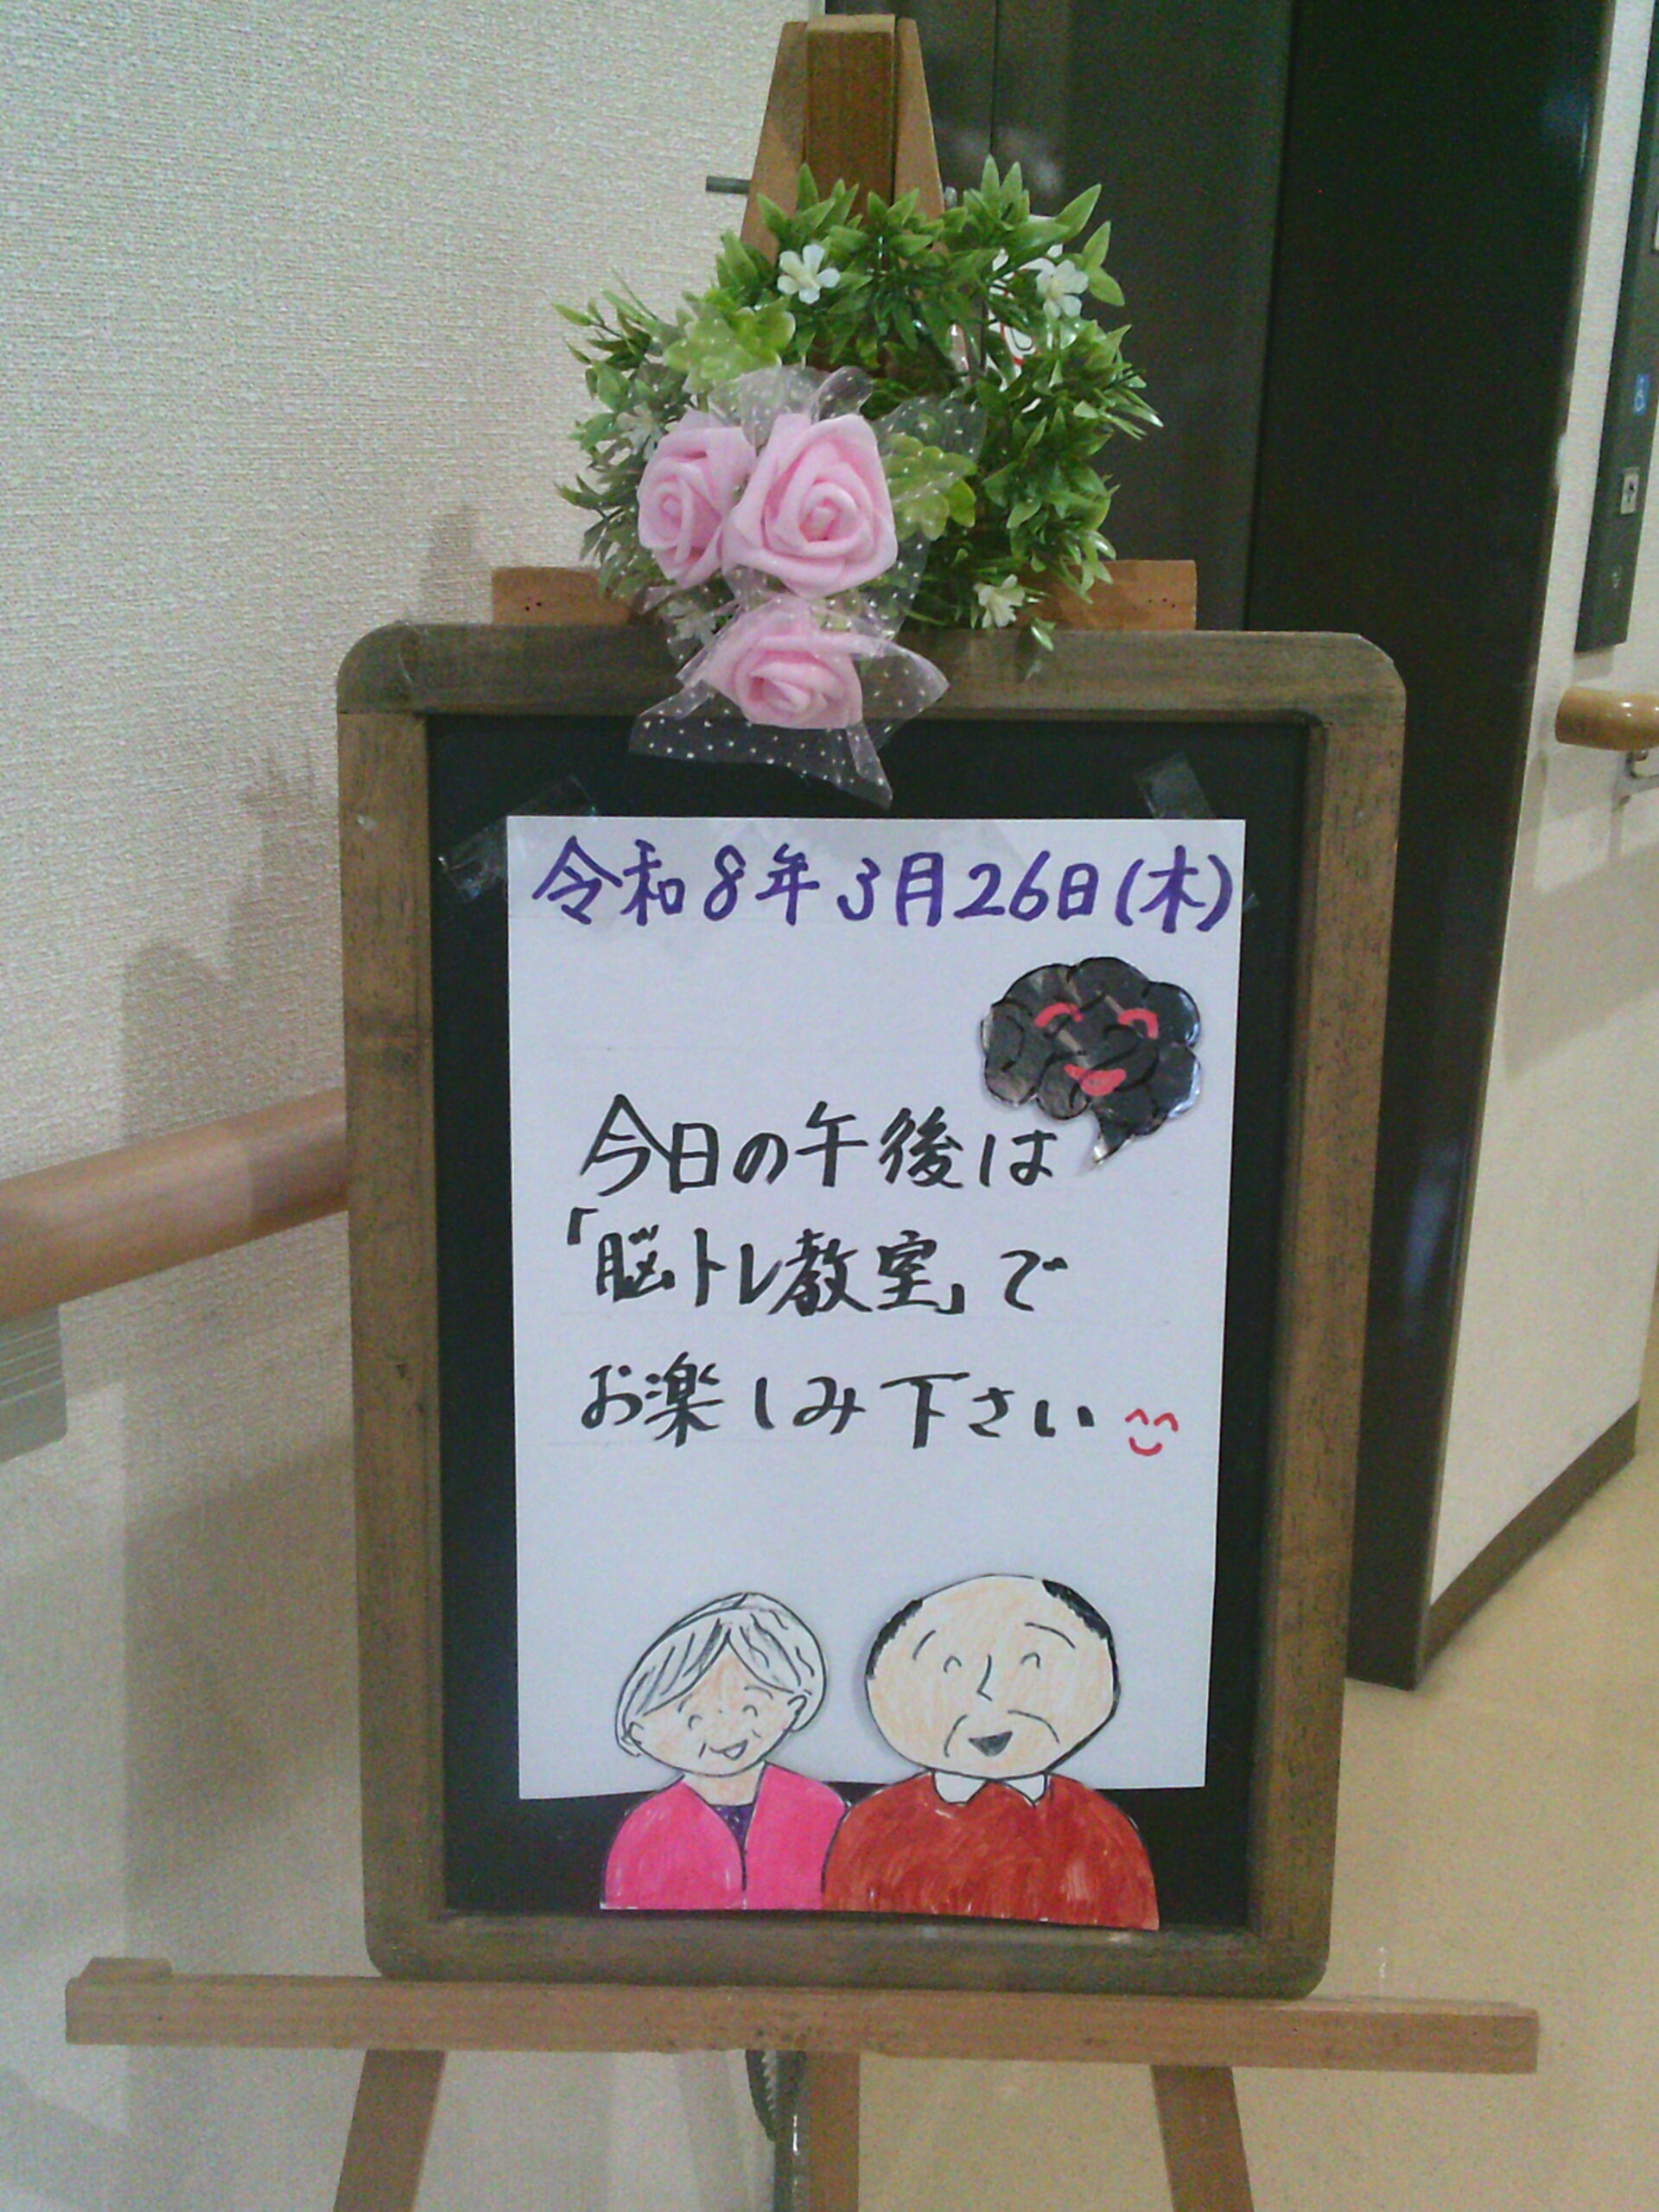 令和8年3月26日(木)
今日の午後は
「脳トレ教室」で
お楽しみ下さい